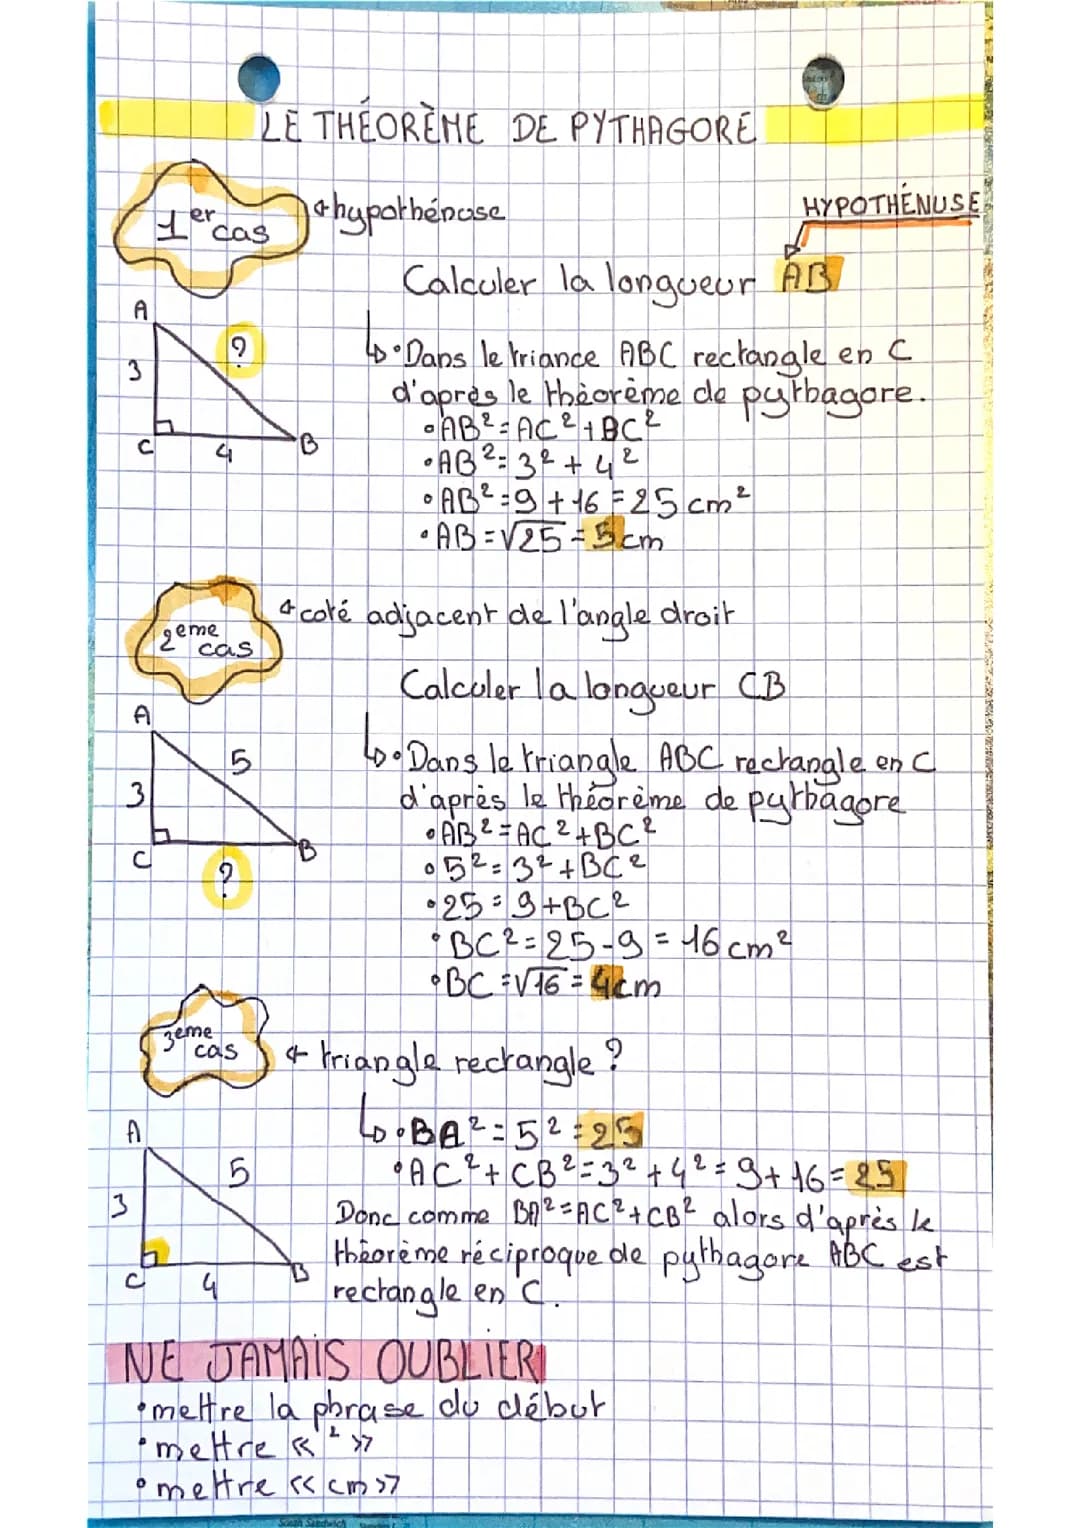 LE THÉORÈME DE PYTHAGORE
1er cas
hypothénuse
HYPOTHÉNUSE
Calculer la longueur AB
A
?
3
C
4
B
• Dans le triance ABC rectangle en C
d'après le théorème de pythagore.
• AB² = AC² + BC²
• AB² = 3² + 4²
• AB² = 9 + 16 = 25 cm²
• AB = √25 = 5cm
2eme cas
coté adjacent de l'angle droit
Calculer la longueur CB
A
5
3
C
B
?
• Dans le triangle ABC rectangle en C
d'après le théorème de pythagore
• AB² = AC² + BC²
• 5² = 3² + BC²
• 25 = 9 + BC²
• BC² = 25 - 9 = 16 cm²
• BC = √16 = 4cm
3eme cas
triangle rectangle ?
A
5
3
C
4
B
• BA² = 5² = 25
• AC² + CB² = 3² + 4² = 9 + 16 = 25
Donc comme BA² = AC² + CB² alors d'après le
théorème réciproque de pythagore ABC est
rectangle en C.
NE JAMAIS OUBLIER
• mettre la phrase du début
• mettre « ² »
• mettre « cm »